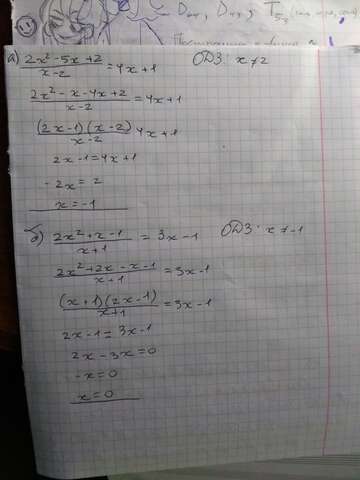 D
D
T
а) (2x² - 5x + 2)/(x - 2) = 4x + 1 ОДЗ: x ≠ 2
(2x² - x - 4x + 2)/(x - 2) = 4x + 1
((2x - 1)(x - 2))/(x - 2) 4x + 1
2x - 1 = 4x + 1
- 2x = 2
x = -1
б) (2x² + x - 1)/(x + 1) = 3x - 1 ОДЗ: x ≠ -1
(2x² + 2x - x - 1)/(x + 1) = 3x - 1
((x + 1)(2x - 1))/(x + 1) = 3x - 1
2x - 1 = 3x - 1
2x - 3x = 0
-x = 0
x = 0